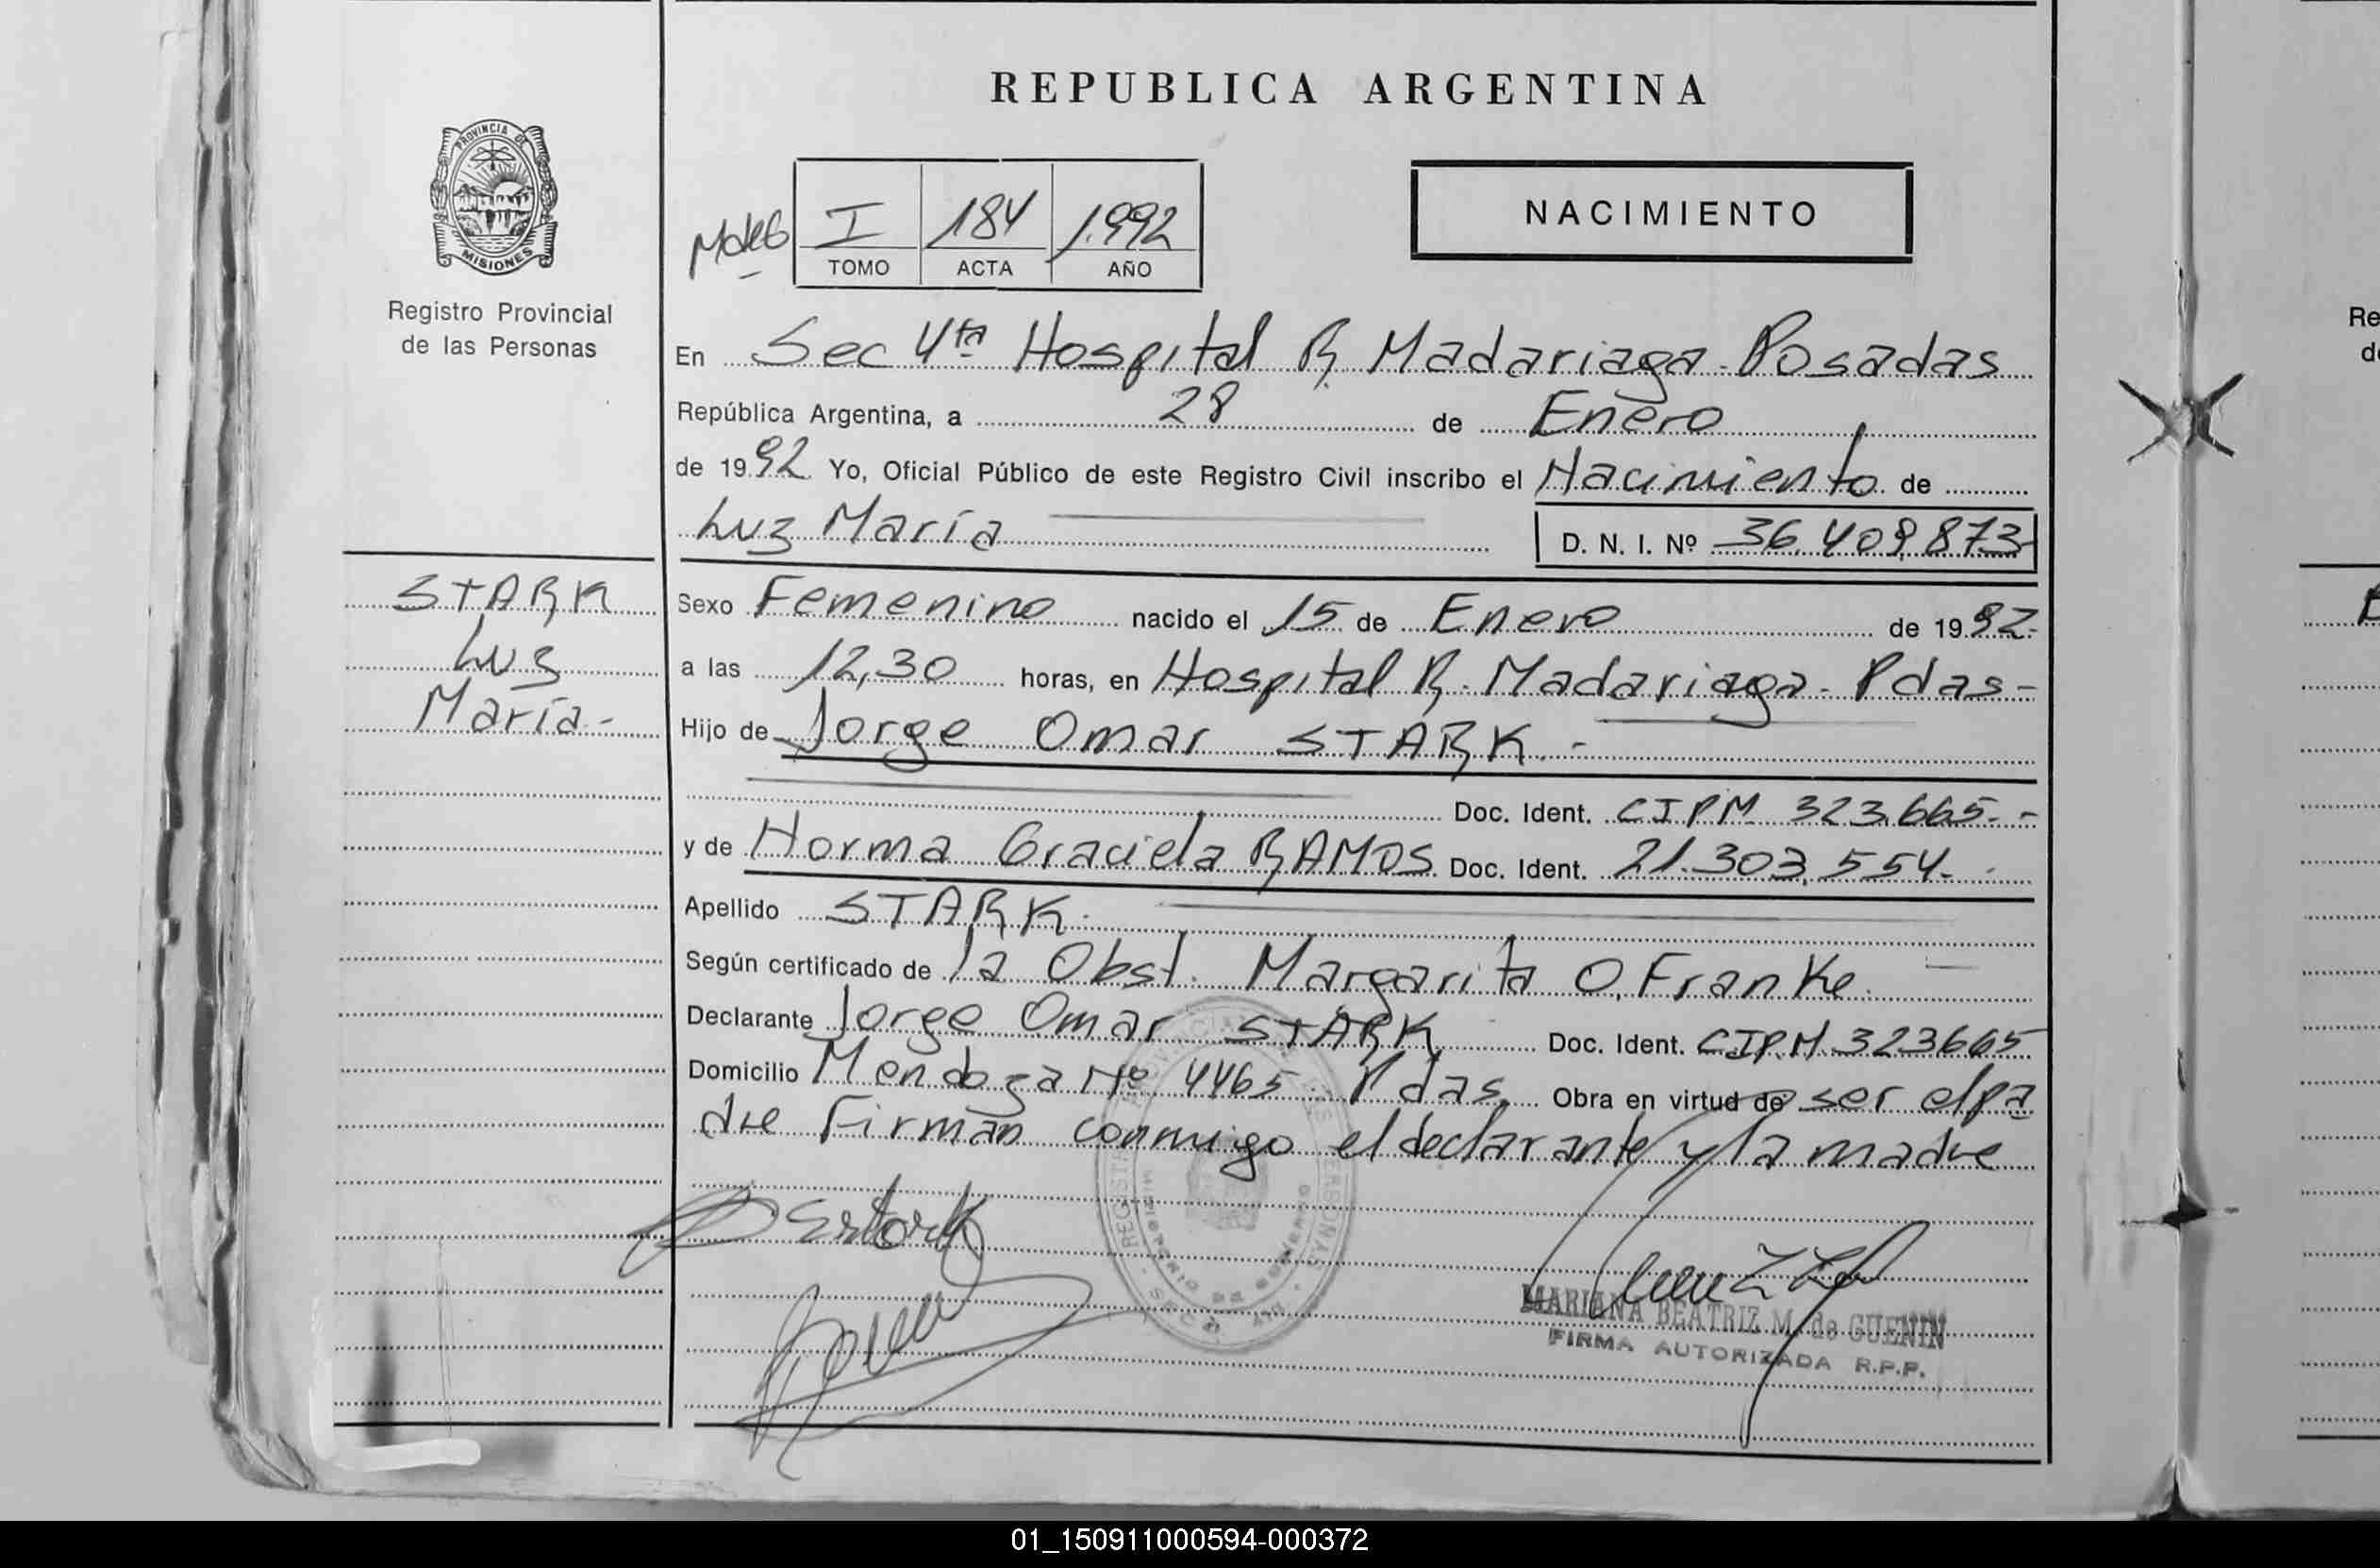 REPUBLICA ARGENTINA
PROVINCIA DE
MISIONES
Registro Provincial
de las Personas
I 184 1.992
TOMO ACTA AÑO
NACIMIENTO
En Sec 4ta Hospital R. Madariaga - Posadas
República Argentina, a 28 de Enero
de 1992 Yo, Oficial Público de este Registro Civil inscribo el Nacimiento de
Luz María D. N. I. Nº 36.409.873-
STARK
Luz
María-
Sexo Femenino nacido el 15 de Enero de 1992-
a las 12,30 horas, en Hospital R. Madariaga - Pdas-
Hijo de Jorge Omar STARK.-
Doc. Ident. CIPM 323.665.-
y de Norma Graciela RAMOS Doc. Ident. 21.303.554-
Apellido STARK.
Según certificado de la Obst. Margarita O. Franke.
Declarante Jorge Omar STARK Doc. Ident. CIPM 323665
Domicilio Mendoza Nº 4465 Pdas. Obra en virtud de ser el pa
dre Firman conmigo el declarante y la madre
MARIANA BEATRIZ M. de GUENIN
FIRMA AUTORIZADA R.P.P.
01_150911000594-000372